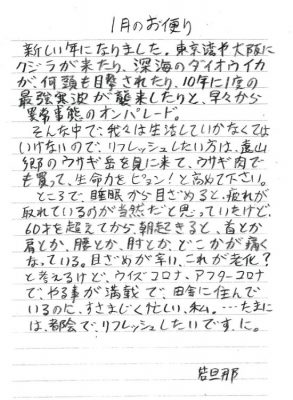 1月のお便り
新しい年になりました。東京湾や大阪に
クジラが来たり、深海のダイオウイカ
が、何頭も目撃されたり、10年に1度の
最強寒波が襲来したりと、早々から
異常事態のオンパレード。
そんな中で、我々は生活していかなくては
いけないので、リフレッシュしたい方は、遠山
郷のウサギ岳を見に来て、ウサギ肉で
も買って、生命力をピョン!と高めて下さい。
ところで、睡眠から目ざめると、疲れが
取れているのが当然だと思っていたけど、
60才を超えてから、朝起きると、首とか
肩とか、腰とか、肘とか、どこかが痛く
なっている。目ざめが辛い、これが老化?
と考えるけど、ウイズコロナ、アフターコロナ
で、やる事が満載で、田舎に住んで
いるのに、すさまじく忙しい、私。…たまに
は、都会で、リフレッシュしたいです、に。
若旦那